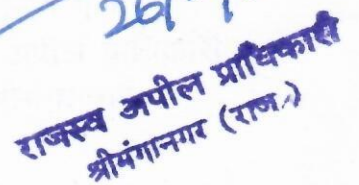 26/
राजस्व अपील प्राधिकारी
श्रीगंगानगर (राज.)